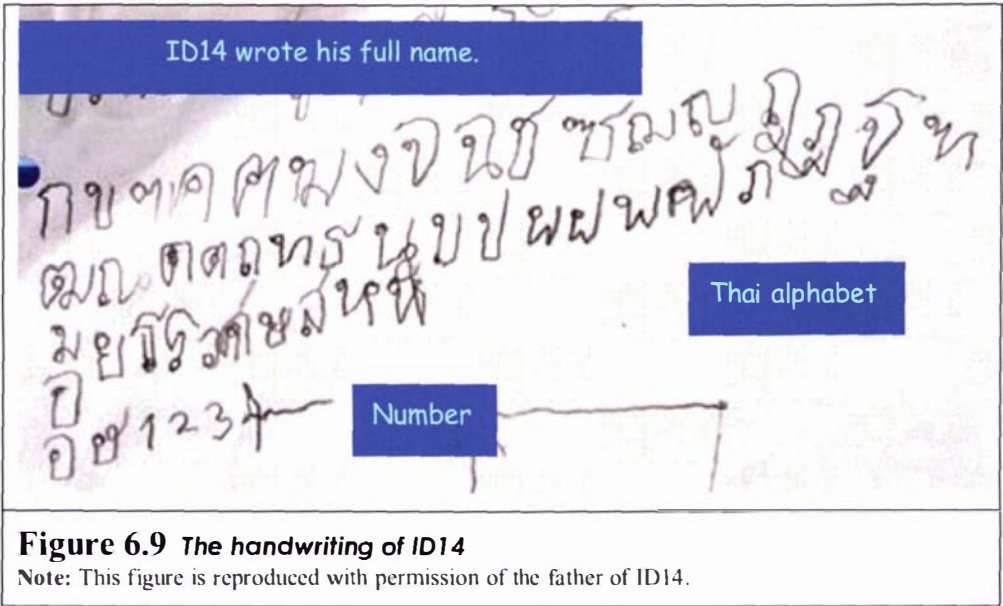 ID14 wrote his full name.
ก ข ฃ ค ฅ ฆ ง จ ฉ ช ซ ฌ ญ ฎ ฏ ฐ ฑ
ฒ ณ ด ต ถ ท ธ น บ ป ผ ฝ พ ฟ ภ
Thai alphabet
ม ย ร ว ศ ษ ส ห ฬ
อ
อ ฮ 1 2 3 4
Number
Figure 6.9 The handwriting of ID14
Note: This figure is reproduced with permission of the father of ID14.